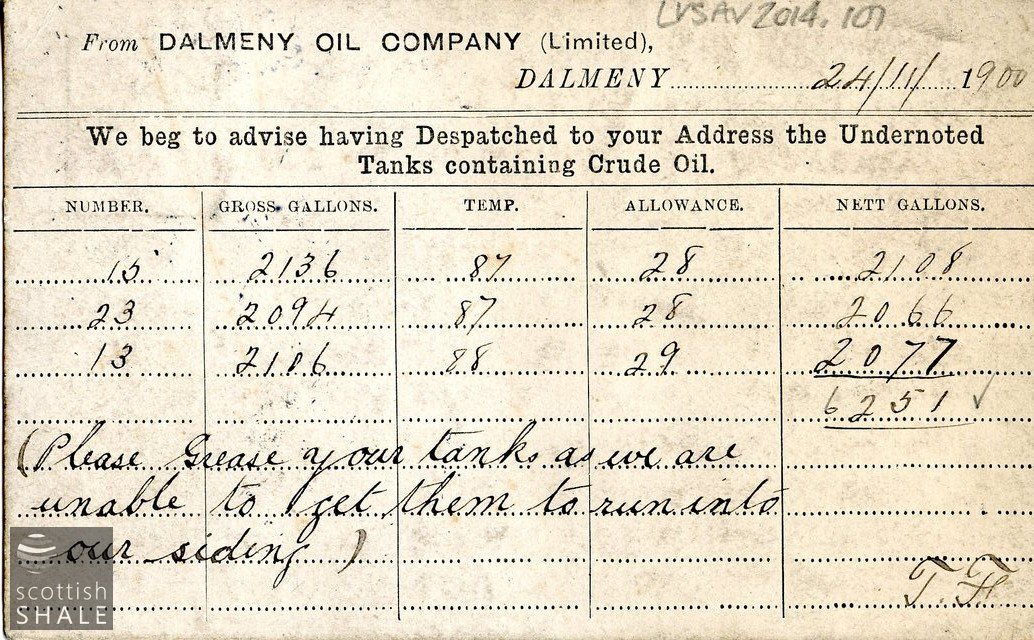 LVSAV2014.107
From DALMENY OIL COMPANY (Limited),
DALMENY 24/11/1900
We beg to advise having Despatched to your Address the Undernoted
Tanks containing Crude Oil.
NUMBER. GROSS GALLONS. TEMP. ALLOWANCE. NETT GALLONS.
15 2136 87 28 2108
23 2094 87 28 2066
13 2106 88 29 2077
6251 ✓
(Please Grease your tanks as we are
unable to get them to run into
our siding)
T. H
scottish
SHALE